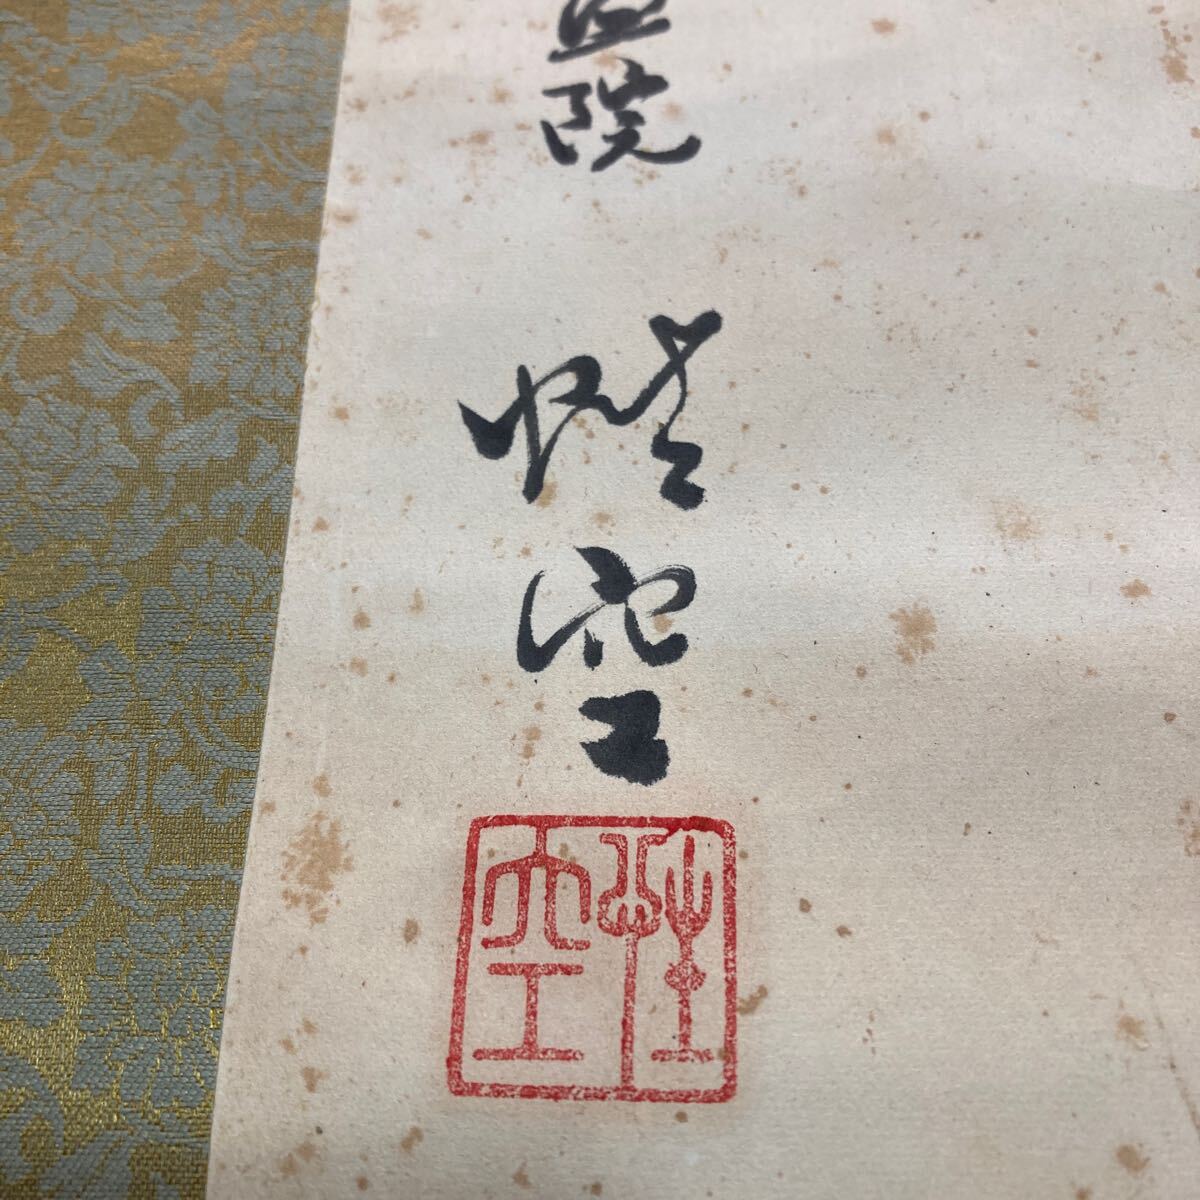 院 性空
性空